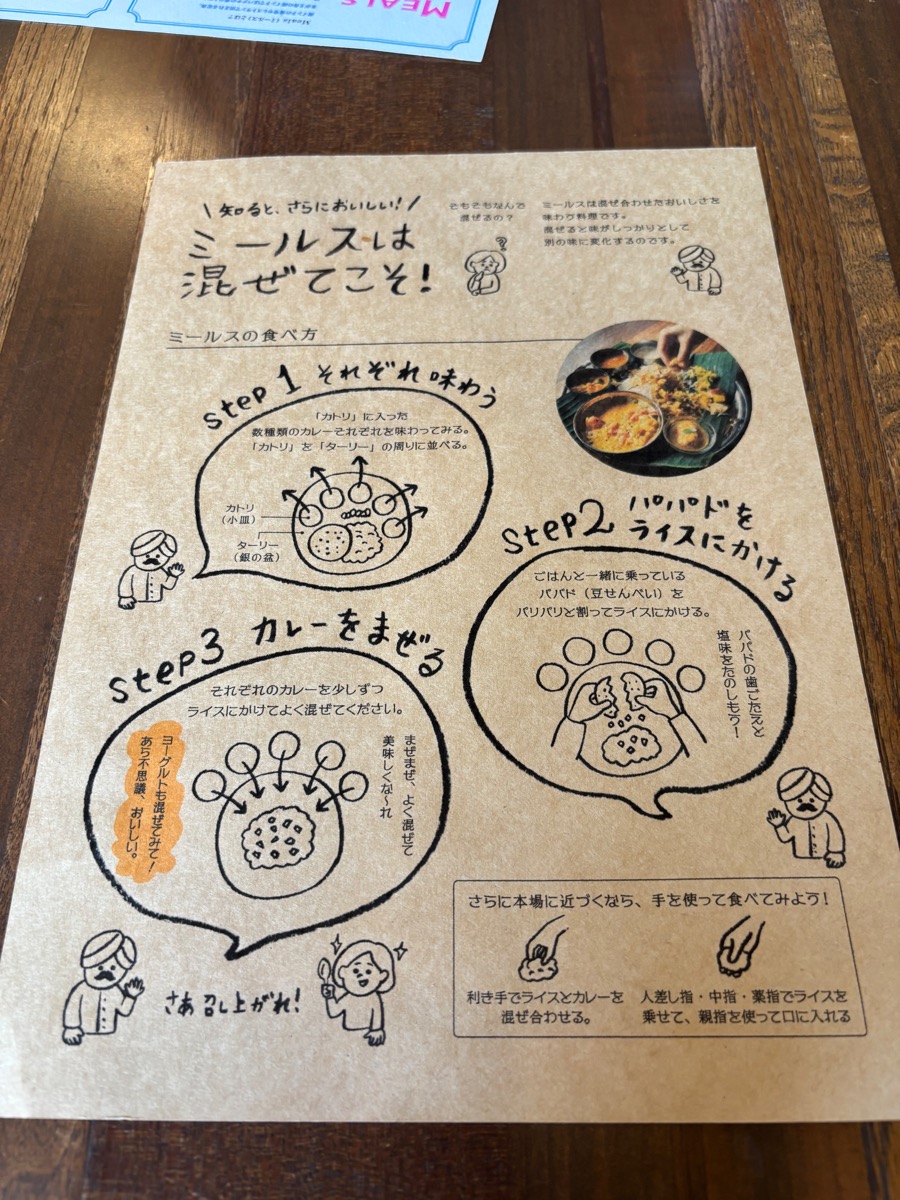 MEALS
\ 知ると、さらにおいしい! /
ミールスは
混ぜてこそ!
そもそもなんで
混ぜるの?
ミールスは混ぜ合わせたおいしさを
味わう料理です。
混ぜると味がしっかりとして
別の味に変化するのです。
?
ミールスの食べ方
step 1 それぞれ味わう
「カトリ」に入った
数種類のカレーそれぞれを味わってみる。
「カトリ」を「ターリー」の周りに並べる。
カトリ
(小皿)
ターリー
(銀の盆)
step2 パパドを
ライスにかける
ごはんと一緒に乗っている
パパド(豆せんべい)を
パリパリと割ってライスにかける。
パパドの歯ごたえと
塩味をたのしもう!
step3 カレーをまぜる
それぞれのカレーを少しずつ
ライスにかけてよく混ぜてください。
まぜまぜ、よく混ぜて
美味しくな〜れ
ヨーグルトも混ぜてみて!
あら不思議、おいしい。
さあ召し上がれ!
さらに本場に近づくなら、手を使って食べてみよう!
利き手でライスとカレーを
混ぜ合わせる。
人差し指・中指・薬指でライスを
乗せて、親指を使って口に入れる